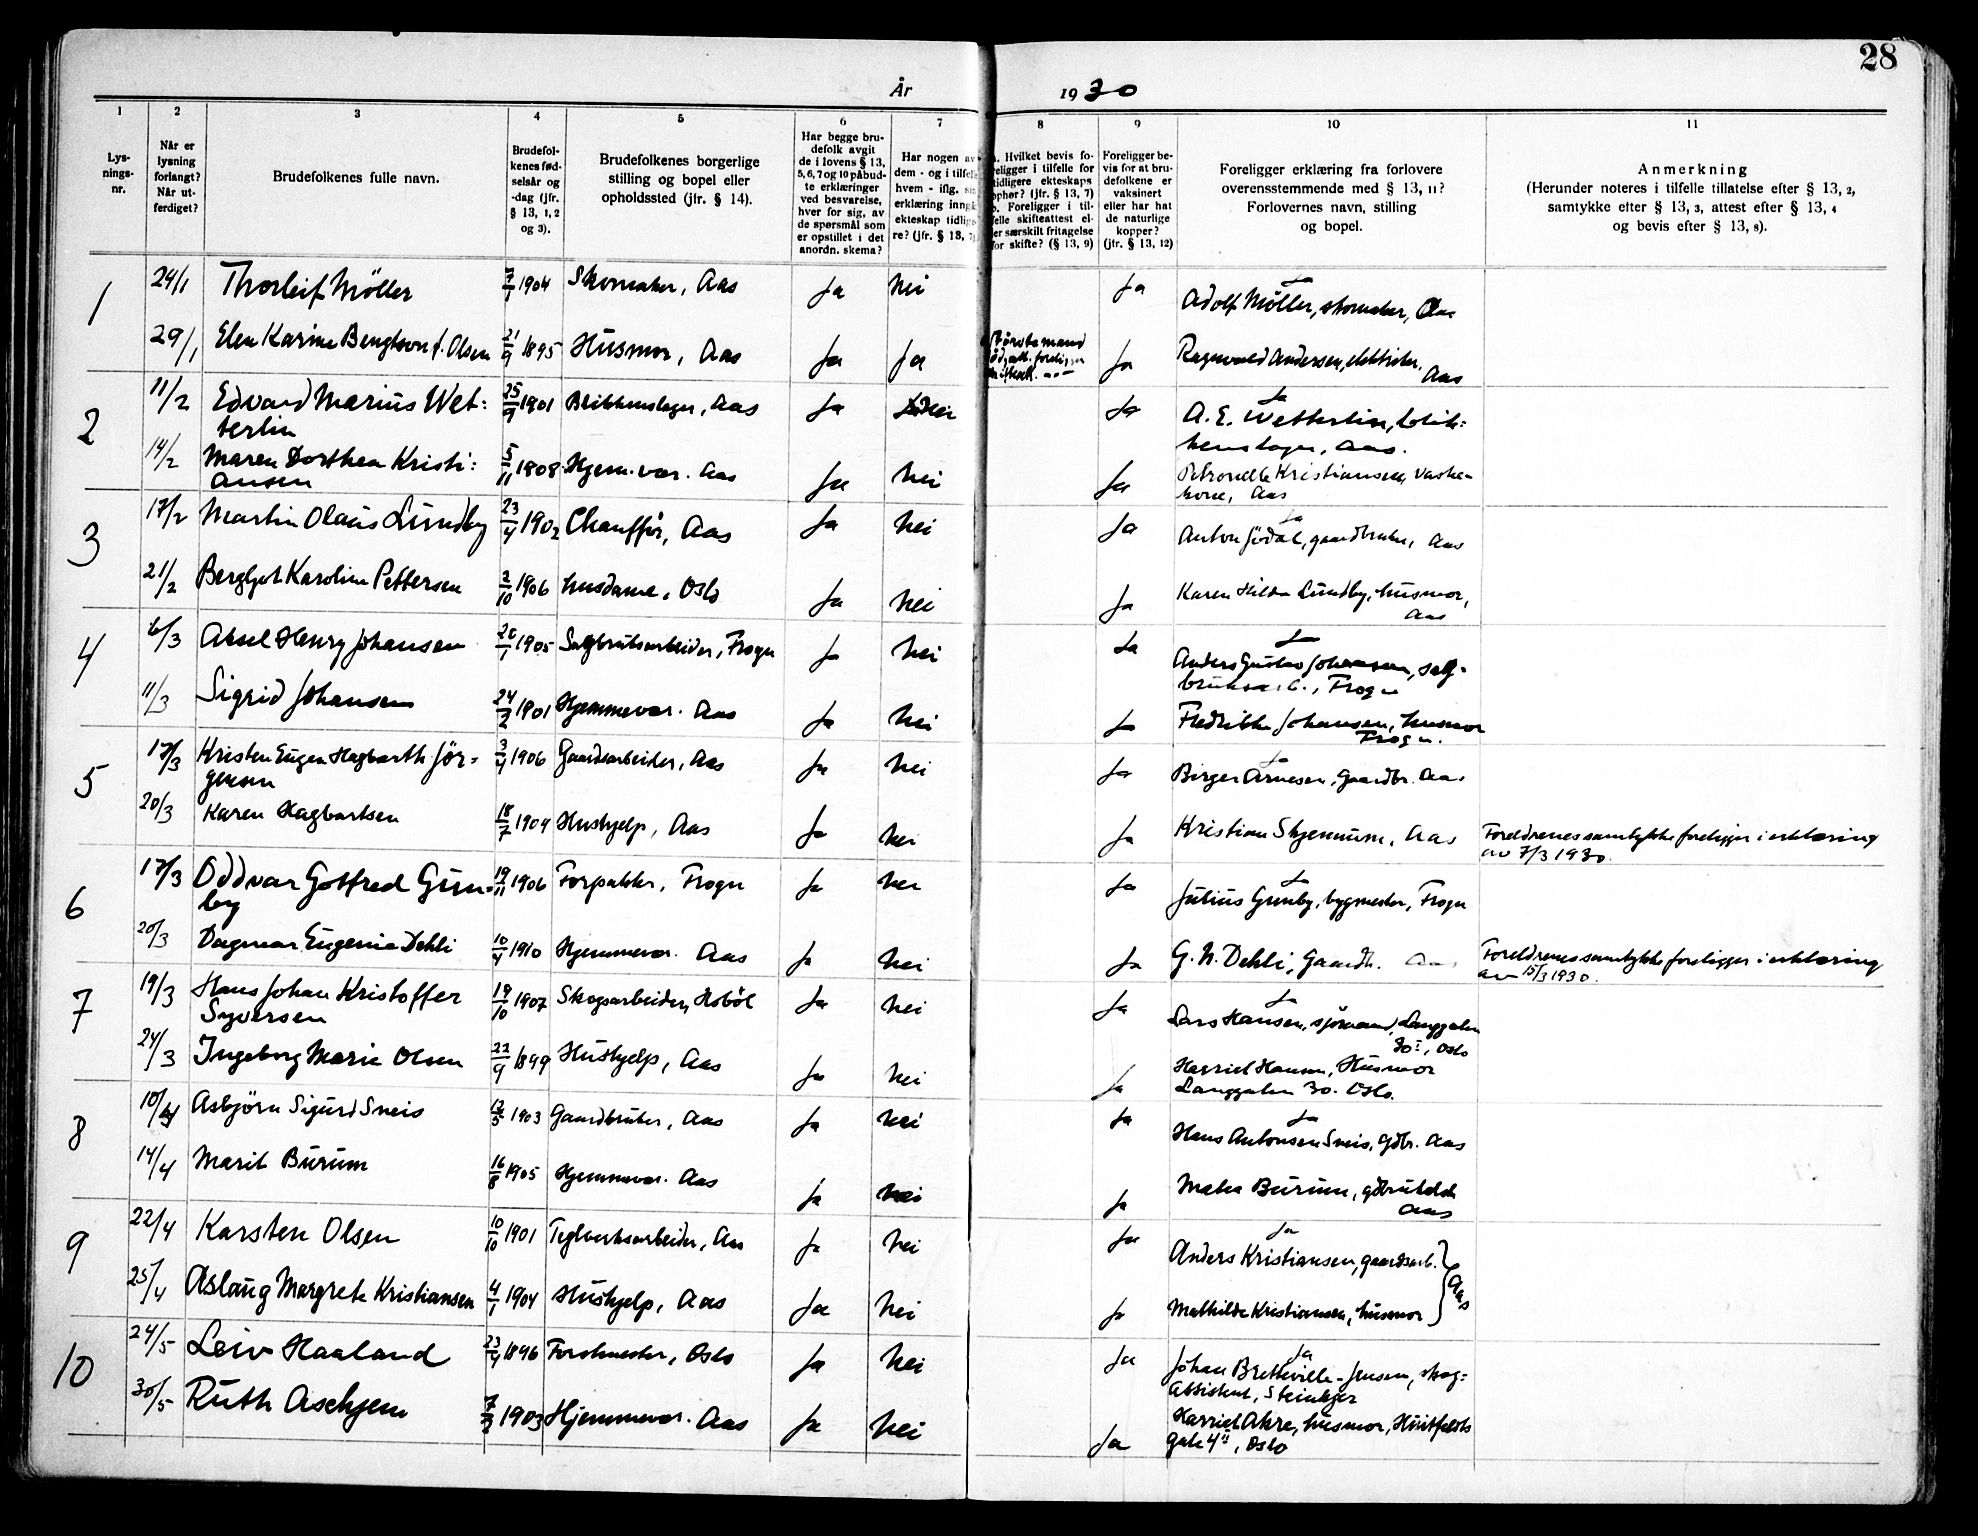 28
År 1930
1 2 3 4 5 6 7 8 9 10 11
Lys-
nings-
nr.
Når er
lysning
forlangt?
Når ut-
ferdiget?
Brudefolkenes fulle navn.
Brudefol-
kenes fød-
selsår og
-dag (jfr.
§ 13, 1, 2
og 3).
Brudefolkenes borgerlige
stilling og bopel eller
opholdssted (jfr. § 14).
Har begge bru-
defolk avgit
de i lovens § 13,
5, 6, 7 og 10 påbud-
te erklæringer
ved besvarelse,
hver for sig, av
de spørsmål som
er opstillet i det
anordn. skema?
Har nogen av
dem - og i tilfelle
hvem - iflg.
erklæring inngå
ekteskap tidlige
re? (jfr. § 13, 7)
Hvilket bevis fo-
religger i tilfelle for
tidligere ekteskaps
ophør? (jfr. § 13, 7)
b. Foreligger i til-
felle skifteattest el-
er særskilt fritagelse
for skifte? (§ 13, 9)
Foreligger be-
vis for at bru-
defolkene er
vaksinert
eller har hat
de naturlige
kopper?
(jfr. § 13, 12)
Foreligger erklæring fra forlovere
overensstemmende med § 13, 11?
Forlovernes navn, stilling
og bopel.
Anmerkning
(Herunder noteres i tilfelle tillatelse efter § 13, 2,
samtykke efter § 13, 3, attest efter § 13, 4
og bevis efter § 13, 8).
1 24/1 Thorleif Möller 7/1 1904 Skomaker, Aas Ja Nei Ja Ja
Adolf Möller, skomaker, Aas
29/1 Elen Karine Bengtson f. Olsen 21/9 1895 Husmor, Aas Ja Ja Ja Ragnvald Andersen, elektriker,
Aas
2 11/2 Edvard Marius Wet-
terlin 25/9 1901 Blikkenslager, Aas Ja Nei Ja Ja
A. E. Wetterlin, blik-
kenslager, Aas.
14/2 Maren Dorthea Kristi-
ansen 5/11 1908 Hjem.vær. Aas Ja Nei Ja Petronelle Kristiansen, vaske-
kone, Aas
3 17/2 Martin Olaus Lundby 23/4 1902 Chauffør, Aas Ja Nei Ja Ja
Anton Jödal, gaardbruker, Aas
21/2 Bergljot Karoline Pettersen 2/10 1906 Husdame, Oslo Ja Nei Ja Karen Hilda Lundby, husmor,
Aas
4 6/3 Aksel Henry Johansen 1905 Sagbruksarbeider, Frogn Ja Nei Ja Ja
Anders Gustav Johansen, sag-
bruksarb., Frogn
11/3 Sigrid Johansen 24/2 1901 Hjemmevær. Aas Ja Nei Ja Fredrikke Johansen, husmor
Frogn.
5 17/3 Kristen Eugen Hagbarth Jör-
gensen 3/4 1906 Gaardsarbeider, Aas Ja Nei Ja Ja
Birger Arnesen, Gaardbr. Aas
20/3 Karen Hagbartsen 18/7 1909 Hushjelp, Aas Ja Nei Ja Kristian Skjennum, Aas Foreldrenes samtykke foreligger i erklæring
av 7/3 1930.
6 17/3 Oddvar Gotfred Grim-
by 19/11 1906 Forpakter, Frogn Ja Nei Ja Ja
Julius Grimby, bygmester, Frogn
20/3 Dagmar Eugenie Dehli 10/4 1910 Hjemmevær. Aas Ja Nei Ja G. N. Dehli, Gaardb. Aas Foreldrenes samtykke foreligger i erklæring
av 15/3 1930.
7 19/3 Hans Johan Kristoffer
Syversen 19/10 1907 Skogsarbeider, Hobøl Ja Nei Ja Ja
Lars Hansen, sjömand, Langgaten
30 I, Oslo
24/3 Ingeborg Marie Olsen 22/9 1899 Hushjelp, Aas Ja Nei Ja Harriet Hansen, Husmor
Langgaten 30. Oslo.
8 10/4 Asbjörn Sigurd Sneis 1903 Gaardbruker, Aas Ja Nei Ja Ja
Hans Antonsen Sneis, gdbr. Aas
14/4 Marit Burum 16/8 1905 Hjemmevær. Aas Ja Nei Ja Burum,
Aas
9 22/4 Karsten Olsen 10/10 1901 Teglverksarbeider, Aas Ja Nei Ja Ja
Anders Kristiansen, gaardsarb.
25/4 Aslaug Margrete Kristiansen 4/1 1904 Hushjelp, Aas Ja Nei Ja Mathilde Kristiansen, husmor } Aas
10 24/5 Leiv Haaland 23/4 1896 Forstmester, Oslo Ja Nei Ja Ja
Johan Bretteville-Jensen, skog-
assistent, Steinkjer
30/5 Ruth Aschjem 1903 Hjemmevær. Aas Ja Nei Ja Harriet Akre, husmor, Huitfeldts
gate 4 II, Oslo